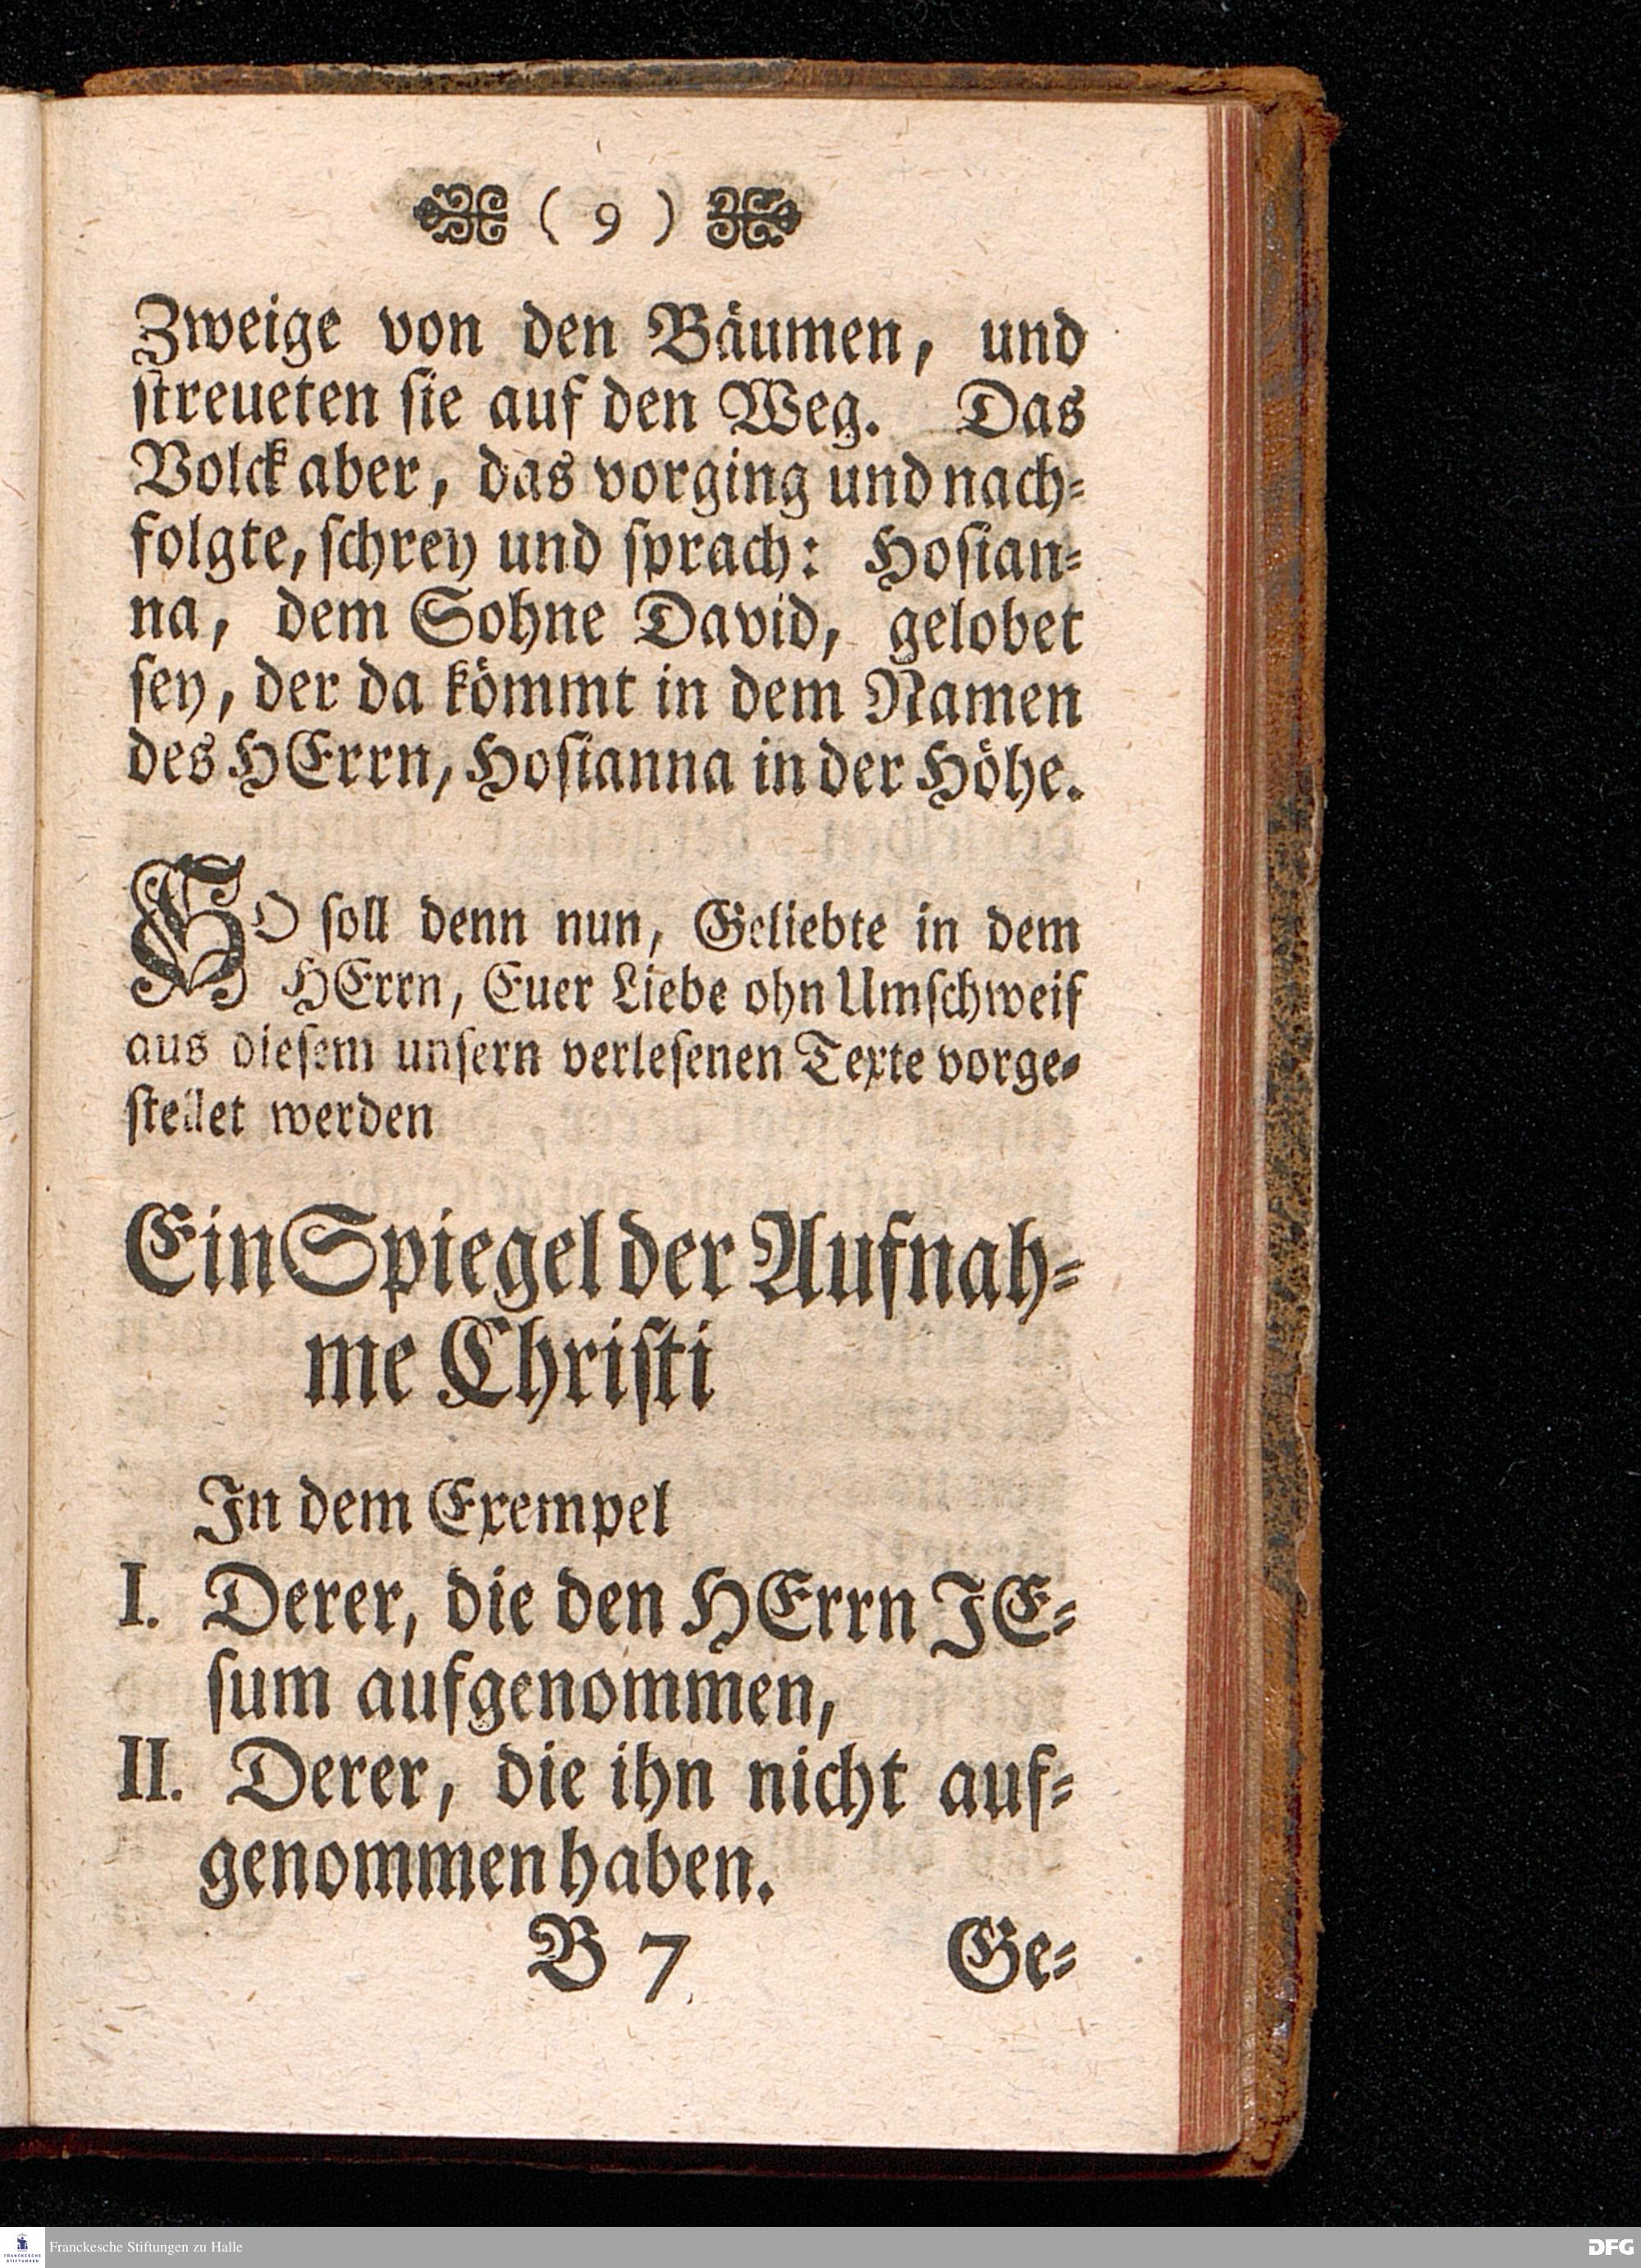 ( 9 )
Zweige von den Bäumen, und
ſtreueten ſie auf den Weg. Das
Volck aber, das vorging und nach-
folgte, ſchrey und ſprach: Hoſian-
na, dem Sohne David, gelobet
ſey, der da kömmt in dem Namen
des HErrn, Hoſianna in der Höhe.
SO ſoll denn nun, Geliebte in dem
HErrn, Euer Liebe ohn Umſchweif
aus dieſem unſern verleſenen Texte vorge-
ſtellet werden
Ein Spiegel der Aufnah-
me Chriſti
In dem Exempel
I. Derer, die den HErrn JE-
ſum aufgenommen,
II. Derer, die ihn nicht auf-
genommen haben.
B 7
Ge-
FRANCKESCHE STIFTUNGEN
Franckesche Stiftungen zu Halle
DFG